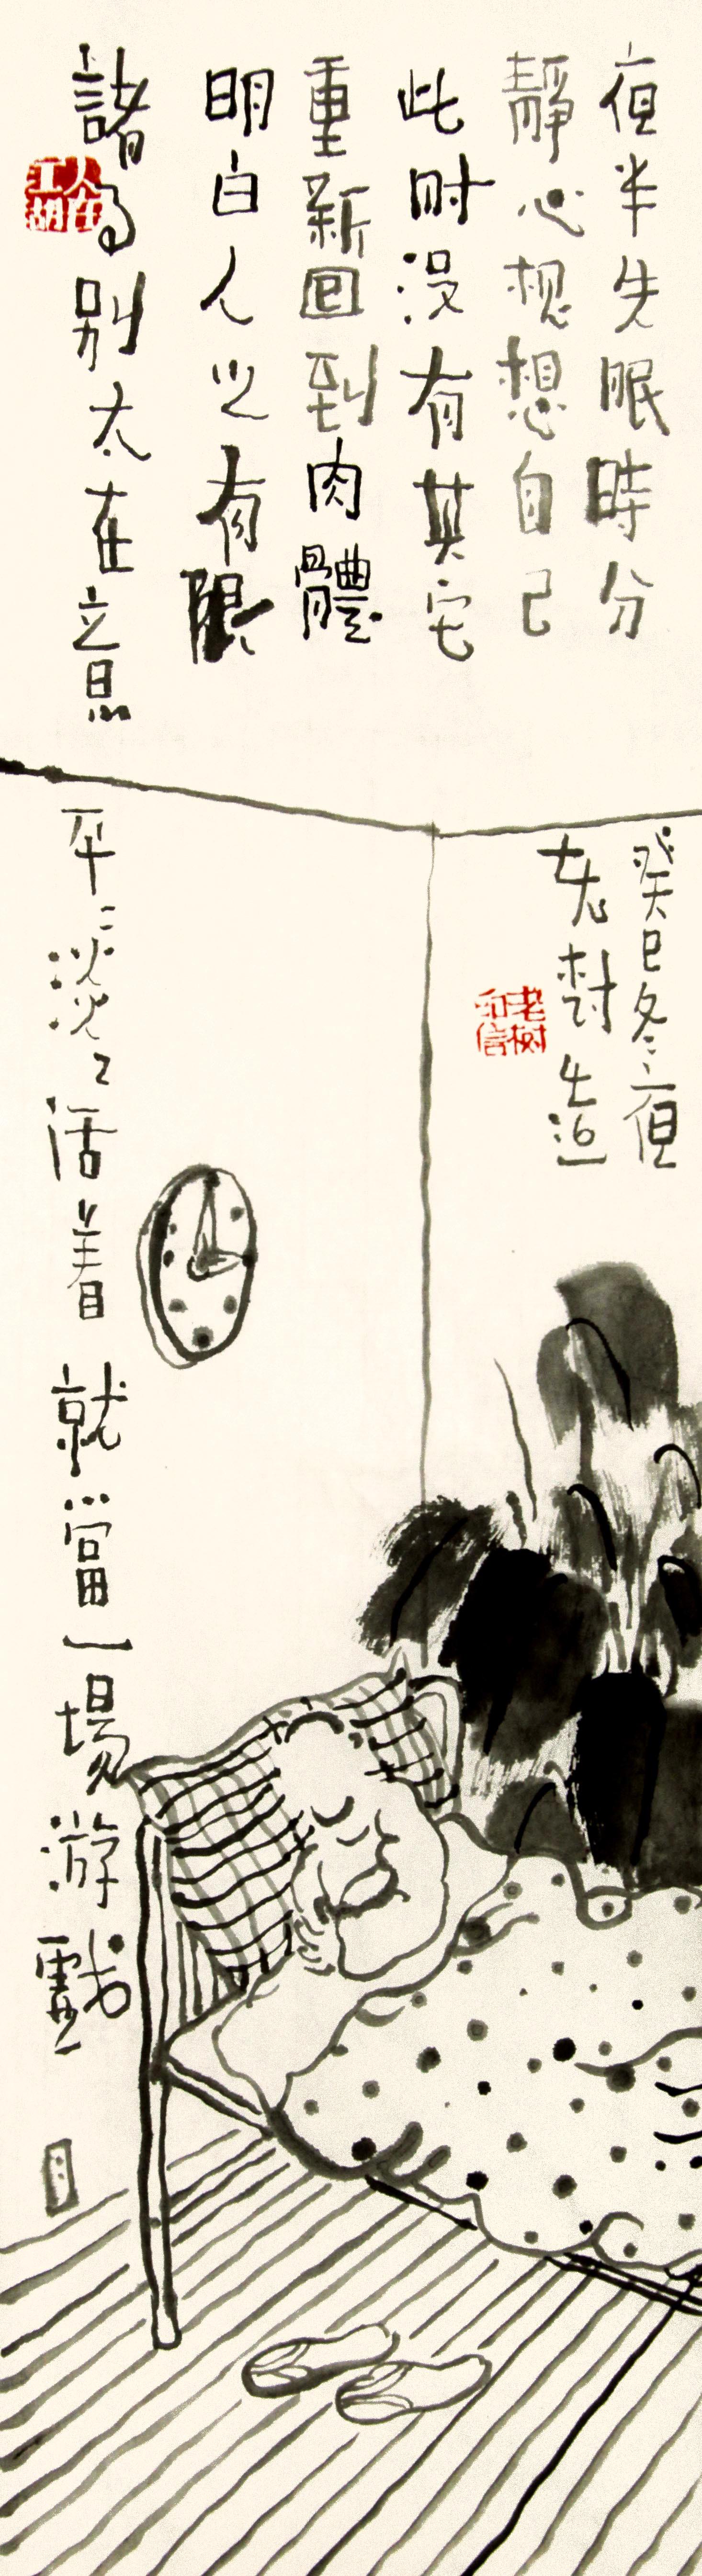 夜半失眠時分
靜心想想自己
此时没有其它
重新回到肉體
明白人之有限
諸事别太在意
平淡活着就當一場游戲
癸巳冬夜
老树生造
人在江胡
老树印信